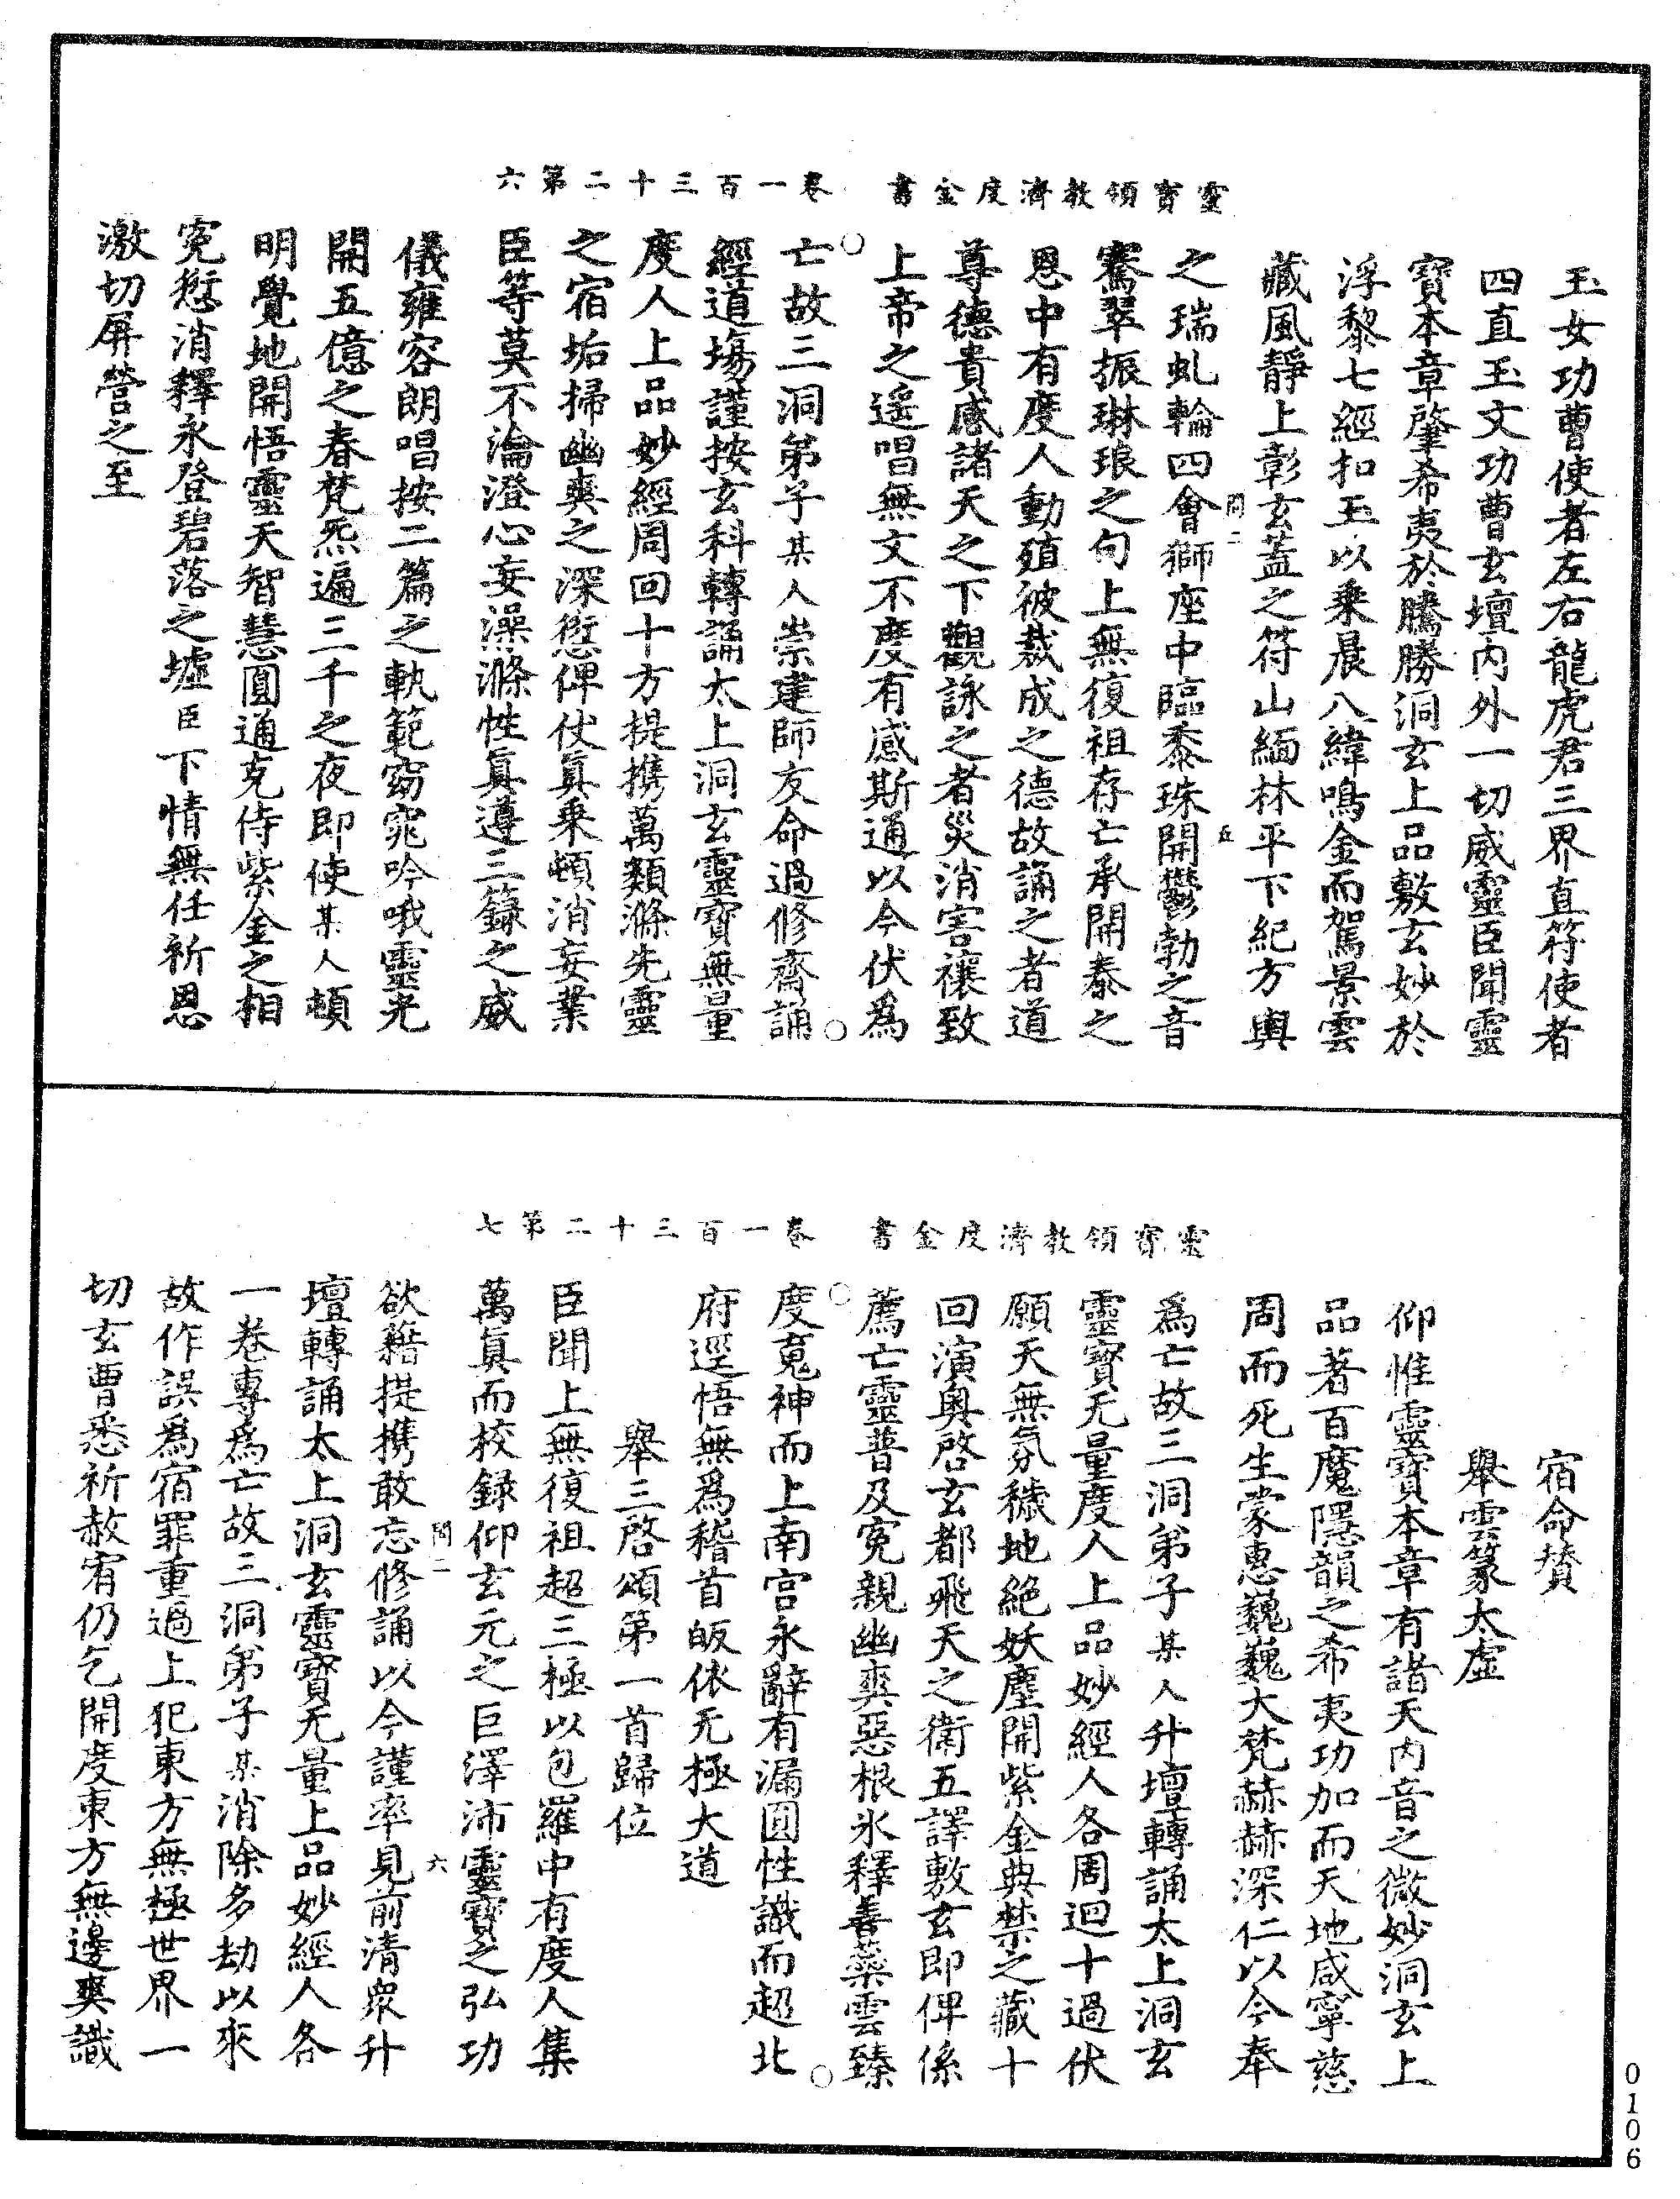 靈寶領教濟度金書　卷一百三十二第六
玉女功曹使者左右龍虎君三界直符使者
四直玉文功曹玄壇內外一切威靈臣聞靈
寶本章肇希夷於騰勝洞玄上品敷玄妙於
浮黎七經扣玉以乘晨八緯鳴金而駕景雲
藏風靜上彰玄蓋之符山緬林平下紀方輿
間二　丘
之瑞虬輪四會獅座中臨黍珠開鬱勃之音
騫翠振琳琅之句上無復祖存亡承開泰之
恩中有度人動殖被裁成之德故誦之者道
尊德貴感諸天之下觀詠之者災消害禳致
上帝之遥唱無文不度有感斯通以今伏爲
亡故三洞弟子某人崇建師友命過修齋誦
經道場謹按玄科轉誦太上洞玄靈寶無量
度人上品妙經周回十方提携萬類滌先靈
之宿垢掃幽爽之深愆俾仗眞乘頓消妄業
臣等莫不淪澄心妄澡滌性眞遵三籙之威
儀雍容朗唱按二篇之軌範窈窕吟哦靈光
開五億之春梵炁遍三千之夜即使某人頓
明覺地開悟靈天智慧圓通克侍紫金之相
寃愆消釋永登碧落之墟臣下情無任祈恩
激切屏營之至
靈寶領教濟度金書　卷一百三十二第七
宿命賛
舉雲篆太虛
仰惟靈寶本章有諸天內音之微妙洞玄上
品著百魔隱韻之希夷功加而天地咸寧慈
周而死生蒙惠巍巍大梵赫赫深仁以今奉
爲亡故三洞弟子某人升壇轉誦太上洞玄
靈寶无量度人上品妙經人各周迴十過伏
願天無氛穢地絕妖塵開紫金典禁之藏十
回演奥啓玄都飛天之衛五譯敷玄即俾係
薦亡靈普及寃親幽爽惡根氷釋善蘂雲臻
度蒐神而上南宮永辭有漏圓性識而超北
府逕悟無爲稽首皈依无極大道
舉三啓頌第一首歸位
臣聞上無復祖超三極以包羅中有度人集
萬眞而校録仰玄元之巨澤沛靈寶之弘功
間二　六
欲藉提携敢忘修誦以今謹率見前清衆升
壇轉誦太上洞玄靈寶无量上品妙經人各
一卷專爲亡故三洞弟子某消除多劫以來
故作誤爲宿罪重過上犯東方無極世界一
切玄曹悉祈赦宥仍乞開度東方無邊爽識
0106